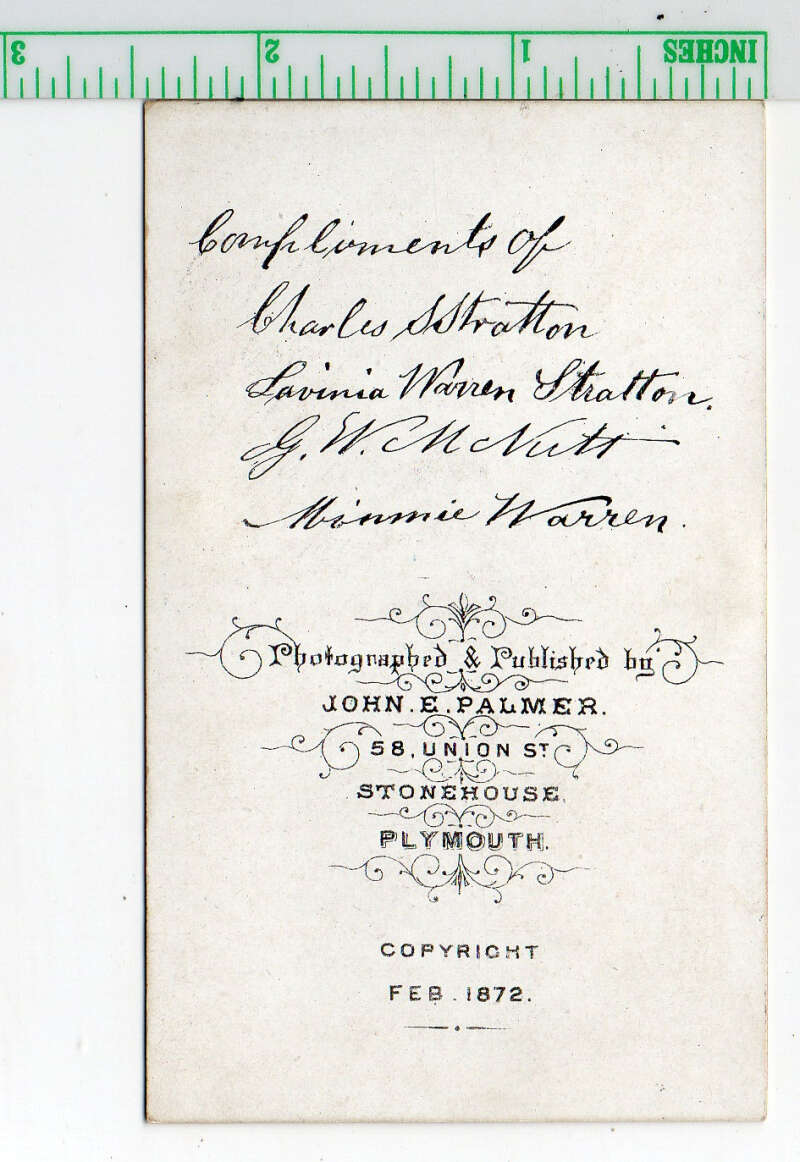 INCHES 1 2 3
Compliments of
Charles S Stratton
Lavinia Warren Stratton.
G. W. M Nutt
Minnnie Warren.
Photographed & Published by
JOHN. E. PALMER.
58, UNION ST
STONEHOUSE,
PLYMOUTH.
COPYRIGHT
FEB. 1872.